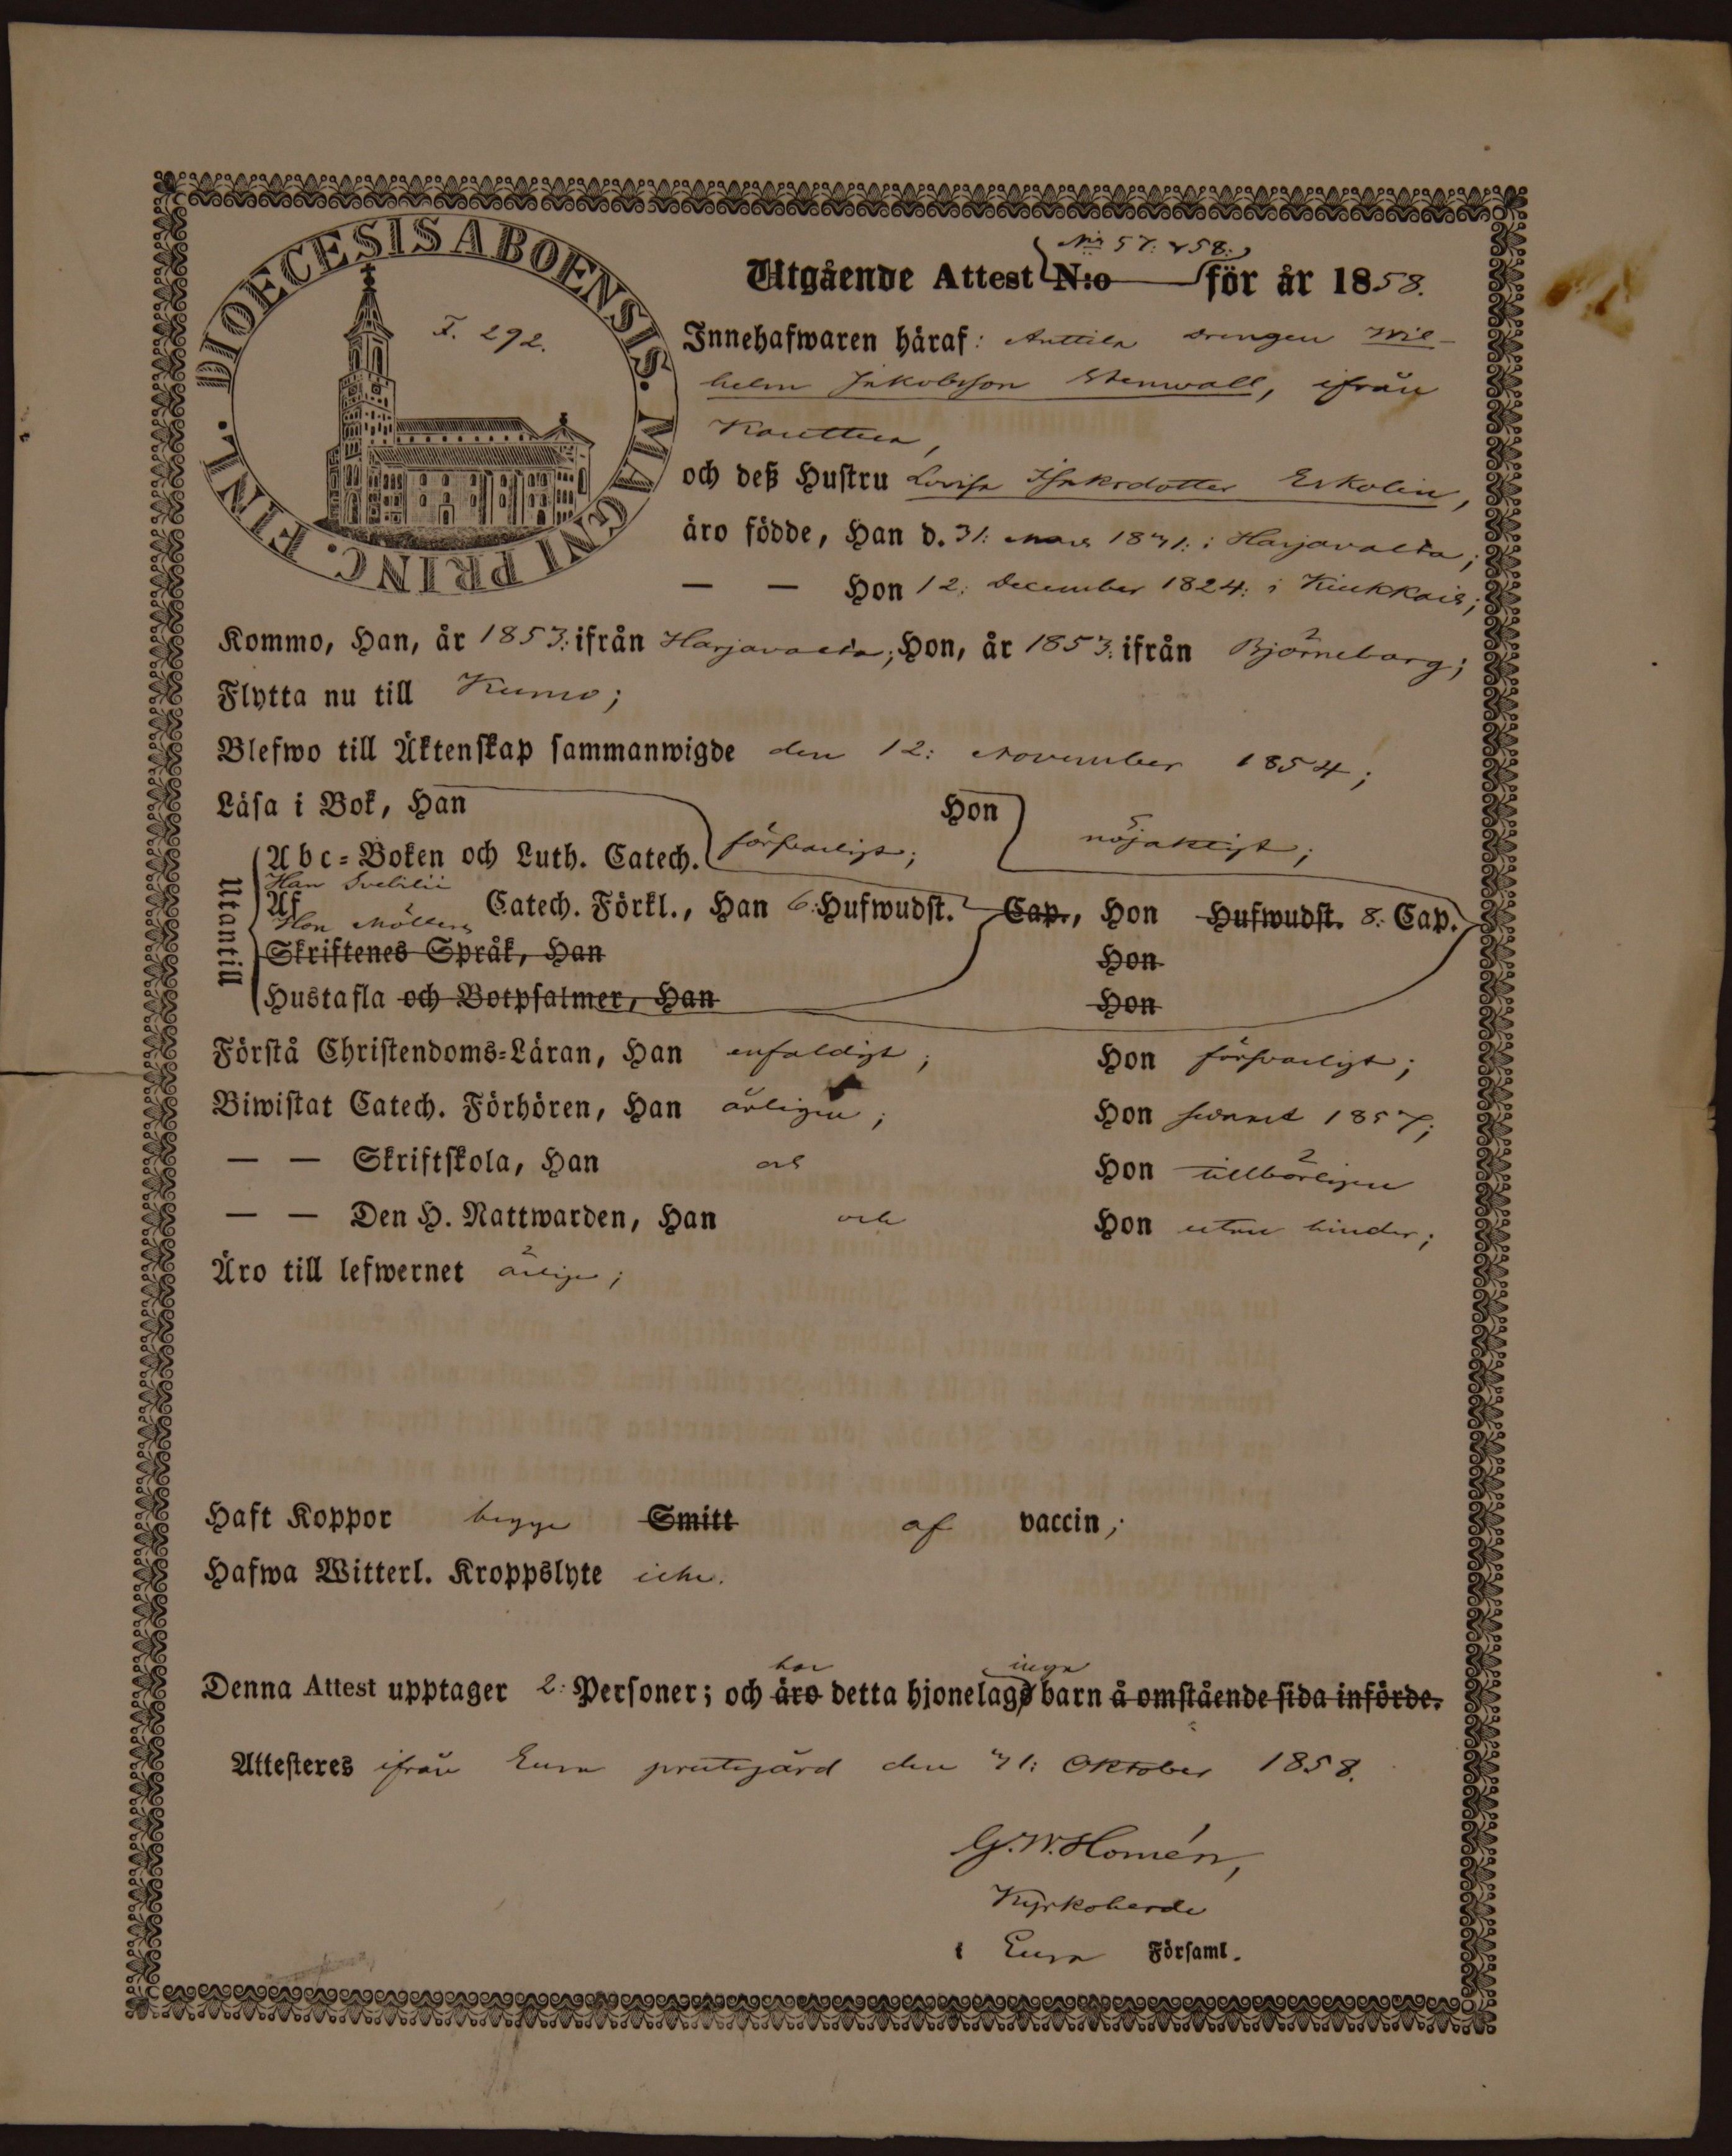 DIOECESIS ABOENSIS. MAGNI PRINC. FINL.
F. 292.
N:is 57: & 58:
Utgående Attest N:o för år 1858.
Innehafwaren häraf: Anttila drengen Wil-
helm Jakobsson Stenwall, ifrån
Kauttua,
och deß Hustru Lovisa Isaksdotter Eskolin,
äro födde, Han d. 31: Mars 1831: i Harjavalta;
— — Hon 12: December 1824: i Kiukkais;
Kommo, Han, år 1853: ifrån Harjavalta; Hon, år 1853: ifrån Björneborg;
Flytta nu till Kumo;
Blefwo till Äktenskap sammanwigde den 12: November 1854;
Läsa i Bok, Han Hon
Abc-Boken och Luth. Catech. försvarligt; nöjaktigt;
Utantill
Han Svebilii
Af Catech. Förkl., Han 6: Hufwudst. Cap., Hon Hufwudst. 8: Cap.
Hon Möllers
Skriftenes Språk, Han Hon
Hustafla och Botpsalmer, Han Hon
Förstå Christendoms-Läran, Han enfaldigt; Hon försvarligt;
Biwistat Catech. Förhören, Han årligen; Hon senast 1857;
— — Skriftskola, Han och Hon tillbörligen
— — Den H. Nattwarden, Han och Hon utan hinder;
Äro till lefwernet ärlige;
Haft Koppor begge Smitt af vaccin;
Hafwa Witterl. Kroppslyte icke.
har inga
Denna Attest upptager 2: Personer; och äro detta hjonelags barn å omstående sida införde.
Attesteres ifrån Eura prestgård den 31: Oktober 1858.
G. W. Homén,
Kyrkoherde
i Eura Församl.